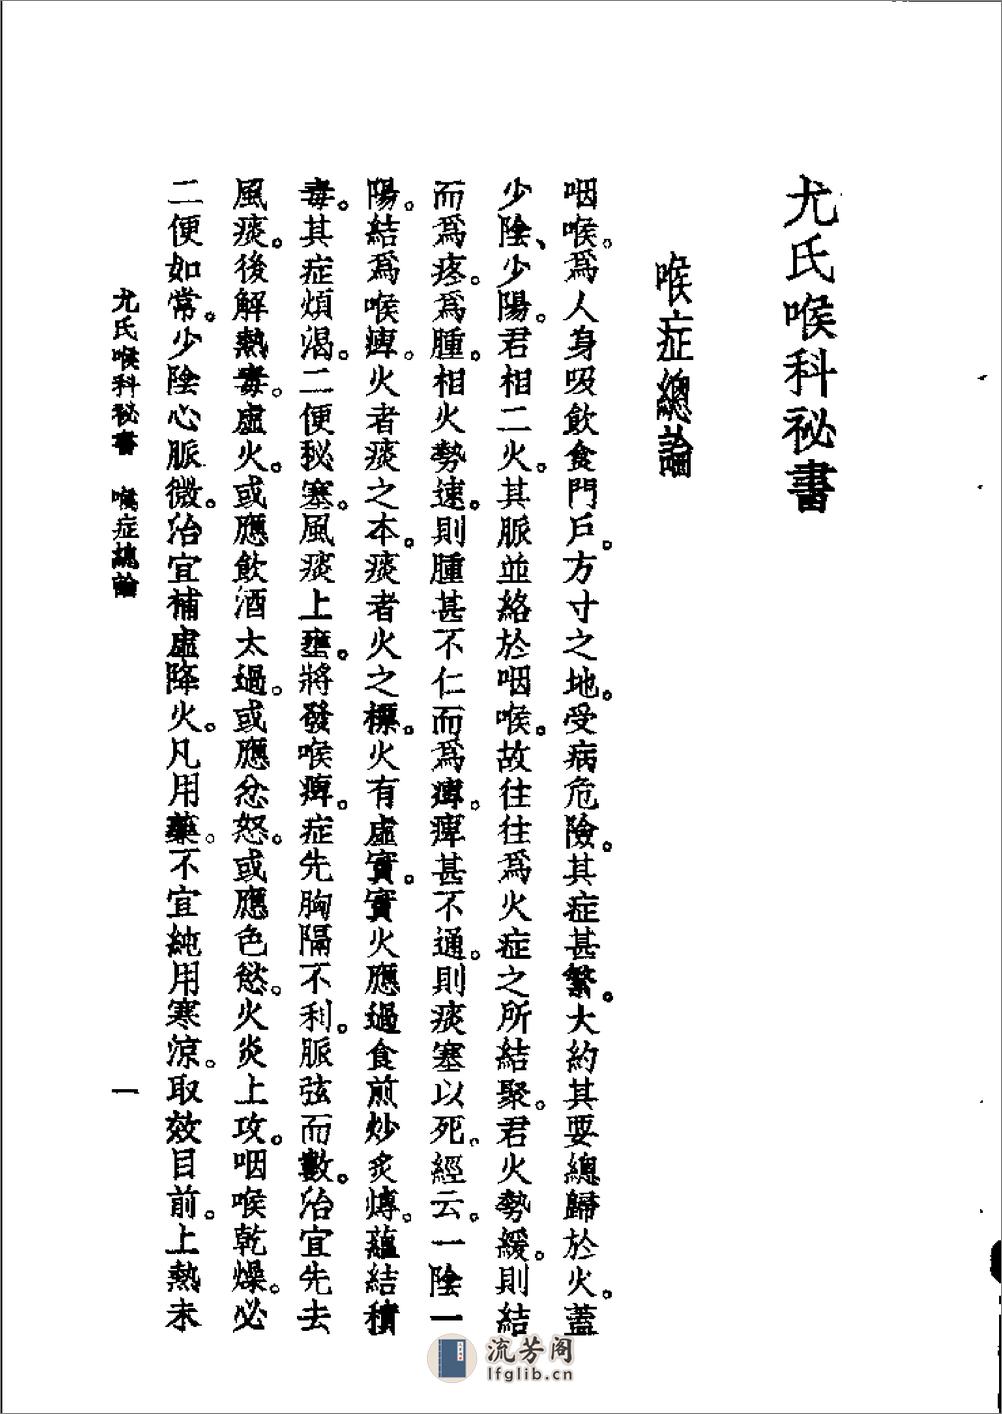 尤氏喉科祕書
喉症總論
咽喉。爲人身吸飲食門戶。方寸之地。受病危險。其症甚繁。大約其要總歸於火。蓋
少陰、少陽。君相二火。其脈並絡於咽喉。故往往爲火症之所結聚。君火勢緩。則結
而爲疼。爲腫。相火勢速。則腫甚不仁而爲痺。痺甚不通。則痰塞以死。經云。一陰一
陽。結爲喉痺。火者痰之本。痰者火之標。火有虛實。實火應過食煎炒炙煿。蘊結積
毒。其症煩渴。二便秘塞。風痰上壅。將發喉痺。症先胸隔不利。脈弦而數。治宜先去
風痰。後解熱毒。虛火。或應飲酒太過。或應忿怒。或應色慾。火炎上攻。咽喉乾燥。必
二便如常。少陰心脈微。治宜補虛降火。凡用藥。不宜純用寒涼。取效目前。上熱未
尤氏喉科秘書　喉症總論　一
流芳阁
lfglib.cn